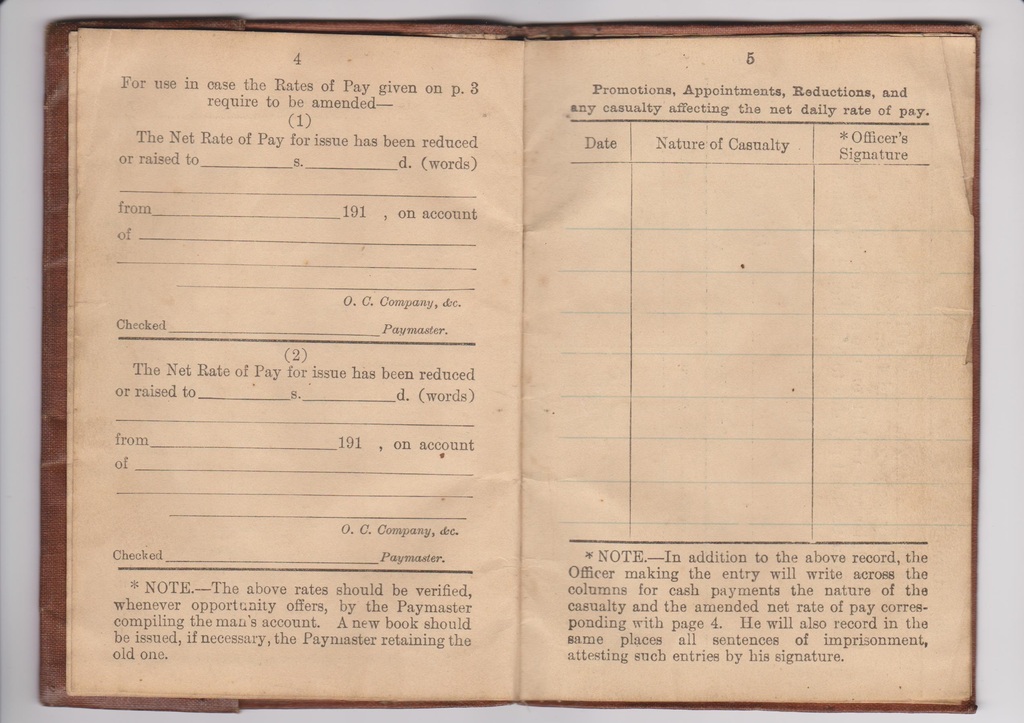 4
For use in case the Rates of Pay given on p. 3
require to be amended—
(1)
The Net Rate of Pay for issue has been reduced
or raised to____________s.____________d. (words)
from________________________191 , on account
of
O. C. Company, &c.
Checked____________________________Paymaster.
(2)
The Net Rate of Pay for issue has been reduced
or raised to____________s.____________d. (words)
from________________________191 , on account
of
O. C. Company, &c.
Checked____________________________Paymaster.
* NOTE.—The above rates should be verified,
whenever opportunity offers, by the Paymaster
compiling the man's account. A new book should
be issued, if necessary, the Paymaster retaining the
old one.
5
Promotions, Appointments, Reductions, and
any casualty affecting the net daily rate of pay.
Date Nature of Casualty * Officer's
Signature
* NOTE.—In addition to the above record, the
Officer making the entry will write across the
columns for cash payments the nature of the
casualty and the amended net rate of pay corres-
ponding with page 4. He will also record in the
same places all sentences of imprisonment,
attesting such entries by his signature.